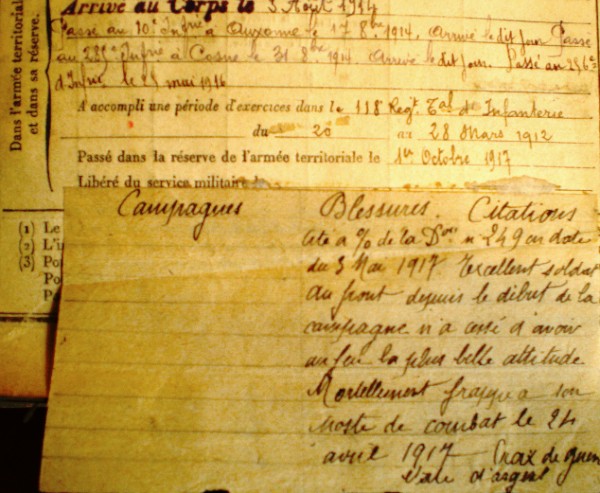 Dans l'armée territoriale
et dans sa réserve.
Arrivé au Corps le 3 Août 1914
Passé au 10e Infrie à Auxonne le 17 8bre 1914. Arrivé le dit jour Passé
au 285e Infrie à Cosne le 31 8bre 1914. Arrivé le dit jour. Passé au 256e
d'Infrie le mai 1916
A accompli une période d'exercices dans le 118 Regt. Tal d'Infanterie
du 20 au 28 Mars 1912
Passé dans la réserve de l'armée territoriale le 1er Octobre 1917
Libéré du service militaire le
(1) Le
(2) L'i
(3) Po
Po
Campagnes Blessures. Citations
Cité à % de la Don n 249 en date
du 3 Mai 1917 Excellent soldat
au front depuis le début de la
campagne n'a cessé d'avoir
au feu la plus belle attitude
Mortellement frappé a son
poste de combat le 24
avril 1917 Croix de guerr
d'argent